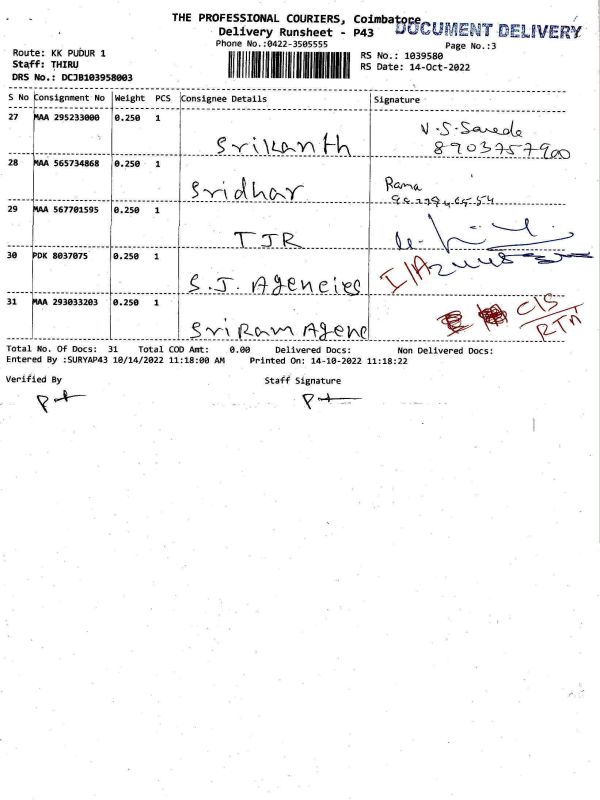 THE PROFESSIONAL COURIERS, Coimbatore
DOCUMENT DELIVERY
Delivery Runsheet - P43
Phone No.:0422-3505555
Page No.:3
Route: KK PUDUR 1
RS No.: 1039580
Staff: THIRU
RS Date: 14-Oct-2022
DRS No.: DCJB103958003
S No Consignment No Weight PCS Consignee Details Signature
27 MAA 295233000 0.250 1 Srikanth
8903757900
28 MAA 565734868 0.250 1 Sridhar Rama
29 MAA 567701595 0.250 1 TJR
30 PDK 8037075 0.250 1 S.J. Agencies I/A
31 MAA 293033203 0.250 1 SriRam Agenc C/S
RTN
Total No. Of Docs: 31 Total COD Amt: 0.00 Delivered Docs: Non Delivered Docs:
Entered By :SURYAP43 10/14/2022 11:18:00 AM Printed On: 14-10-2022 11:18:22
Verified By Staff Signature